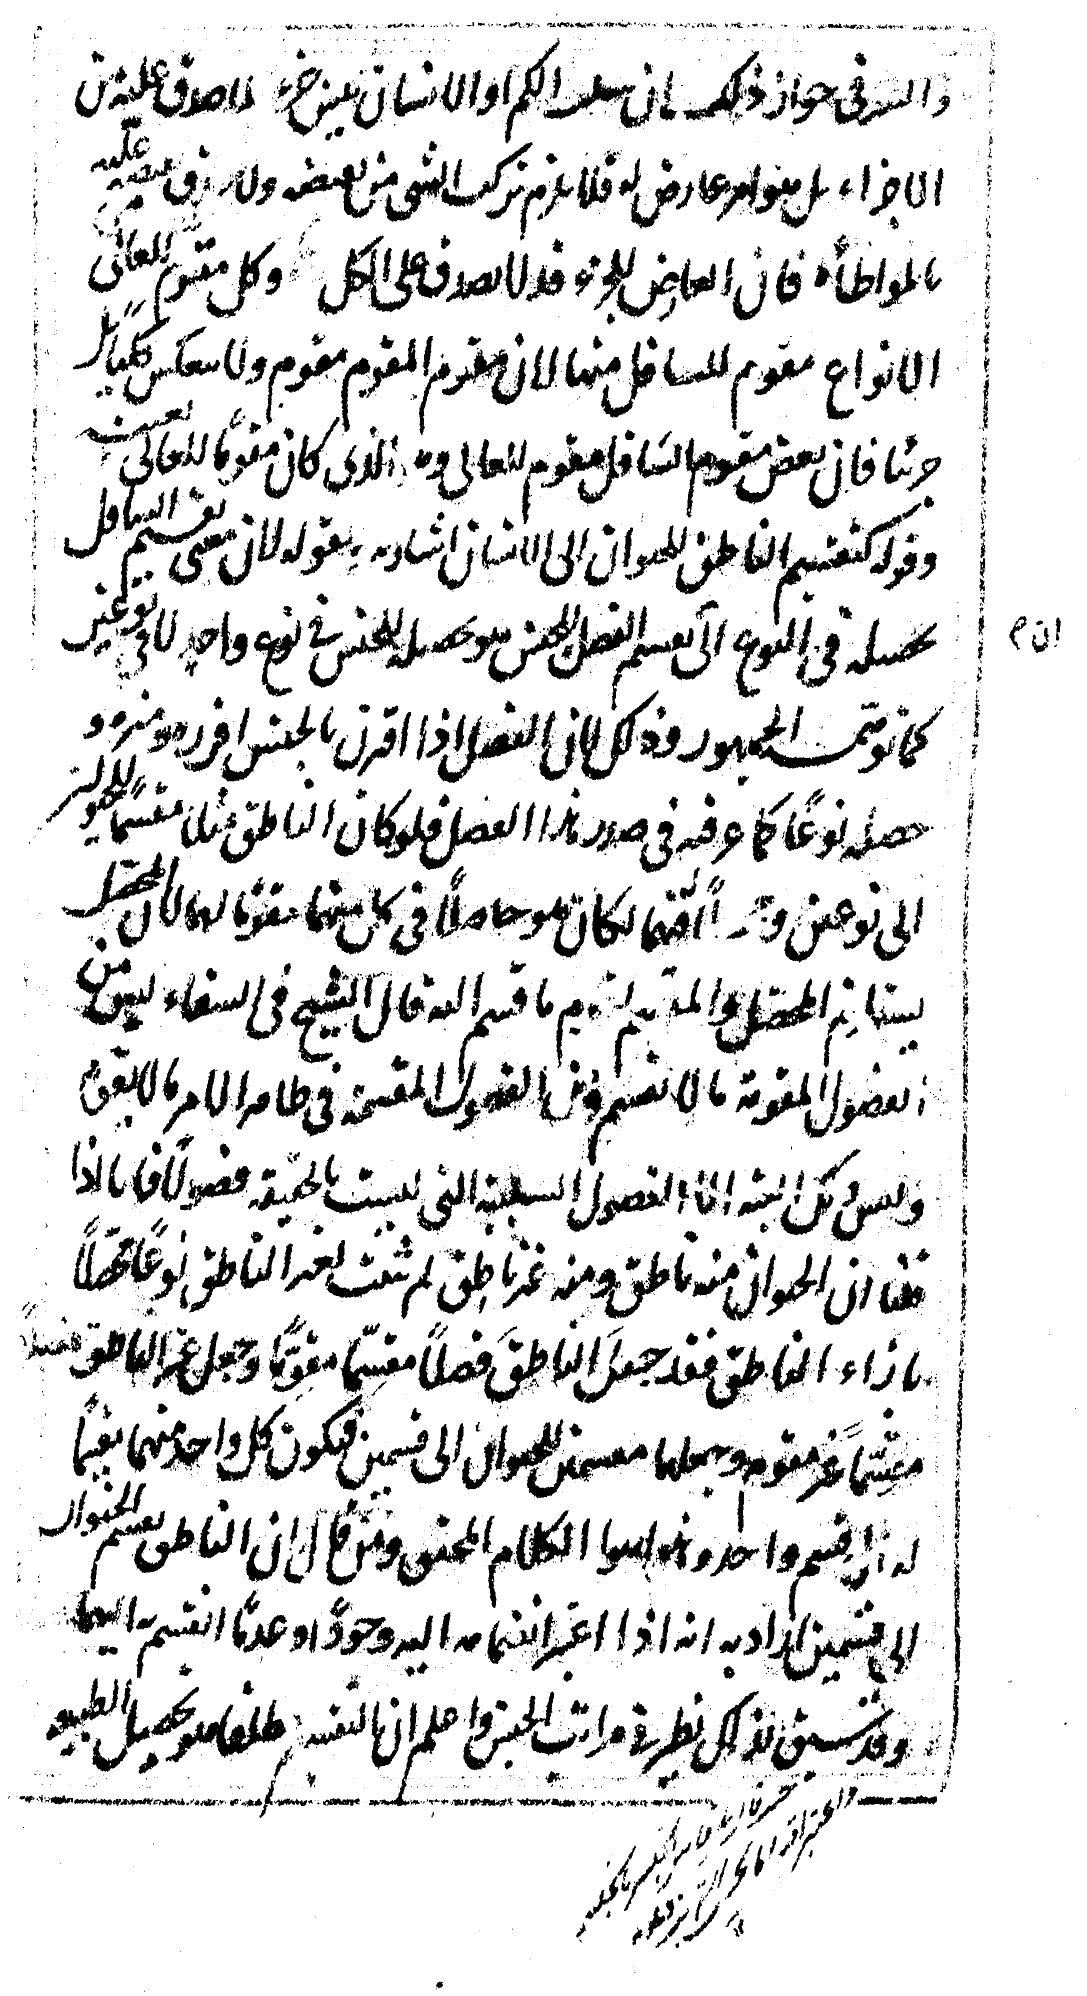 والسر في جواز ذلك ان سلب الكم او الانسان ليس جزء ماصدق عليه من
الاجزاء بل هو امر عارض له فلا يلزم تركب الشي من نقيضه ولا صدق نقيضه عليه
بالمواطأة فان العارض للجزء قد لا يصدق على الكل وكل مقوم للعالى
الانواع مقوم للسافل منها لان مقوم المقوم مقوم ولا ينعكس كليا بل
جزئيا فان بعض مقوم السافل مقوم للعالى وهو الذى كان مقوما للعالى بعينه
وقوله كتقسيم الناطق للحيوان الى الانسان اشارة بقوله لان معنى تقسيم السافل
تحصيله فى النوع الى تقسيم الفصل للجنس هو تحصيله للجنس في نوع واحد لا في نوعين
كما توهمه الجمهور وذلك لان الفصل اذا اقترن بالجنس افرزه وميزه و
حصله نوعًا كما عرفته فى صدر هذا الفصل فلو كان الناطق مثلا مقسمًا للحيوان
الى نوعين لكان هو حاصلًا فى كل منهما مقومًا لهما لان المحصل
يستلزم المحصل والمقسم لشيء يقوم ما قسم اليه قال الشيخ فى الشفاء ليس من
الفصول المقومة ما لا يقسم ومن الفصول المقسمة فى ظاهر الامر ما لا يقوم
وليس ذلك البتة الا الفصول السلبية التى ليست بالحقيقة فصولًا فانا اذا
قلنا ان الحيوان منه ناطق ومنه غير ناطق لم يثبت لغير الناطق نوعًا محصلًا
بازاء الناطق فقد جعل الناطق فصلًا مقسمًا مقومًا وجعل غير الناطق فصلًا
مقسمًا غير مقوم وجعلهما مقسمين للحيوان الى قسمين فيكون كل واحد منهما مقسمًا
له الى قسم واحد وهذا هو الكلام المحقق ومن قال ان الناطق يقسم الحيوان
الى قسمين اراد به انه اذا اعتبر انضمامه اليه وجودًا وعدمًا انقسم به اليهما
وقد سبق لذلك نظير في مراتب الجنس واعلم ان التقسيم مطلقا هو تحصيل الطبيعة
ان م